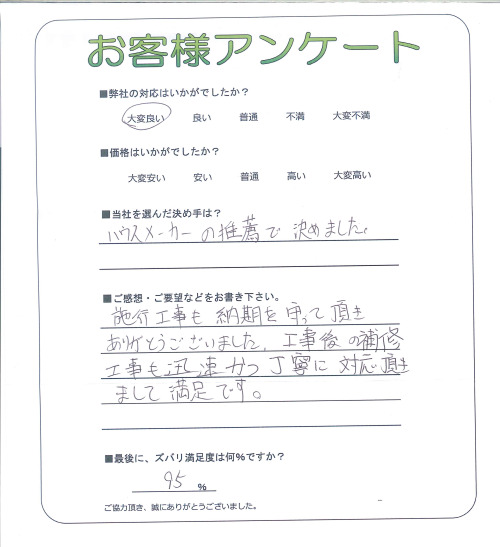 お客様アンケート
■弊社の対応はいかがでしたか？
大変良い 良い 普通 不満 大変不満
■価格はいかがでしたか？
大変安い 安い 普通 高い 大変高い
■当社を選んだ決め手は？
ハウスメーカーの推薦で決めました。
■ご感想・ご要望などをお書き下さい。
施行工事も納期を守って頂き
ありがとうございました。工事後の補修
工事も迅速かつ丁寧に対応頂き
まして満足です。
■最後に、ズバリ満足度は何％ですか？
95 ％
ご協力頂き、誠にありがとうございました。